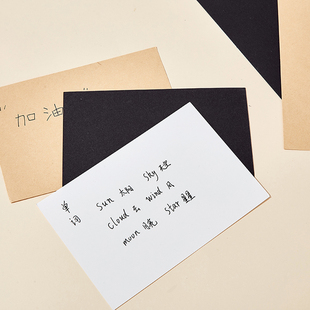 "加油
单词
sun 太阳 sky 天空
cloud 云 wind 风
moon 月亮 star 星星